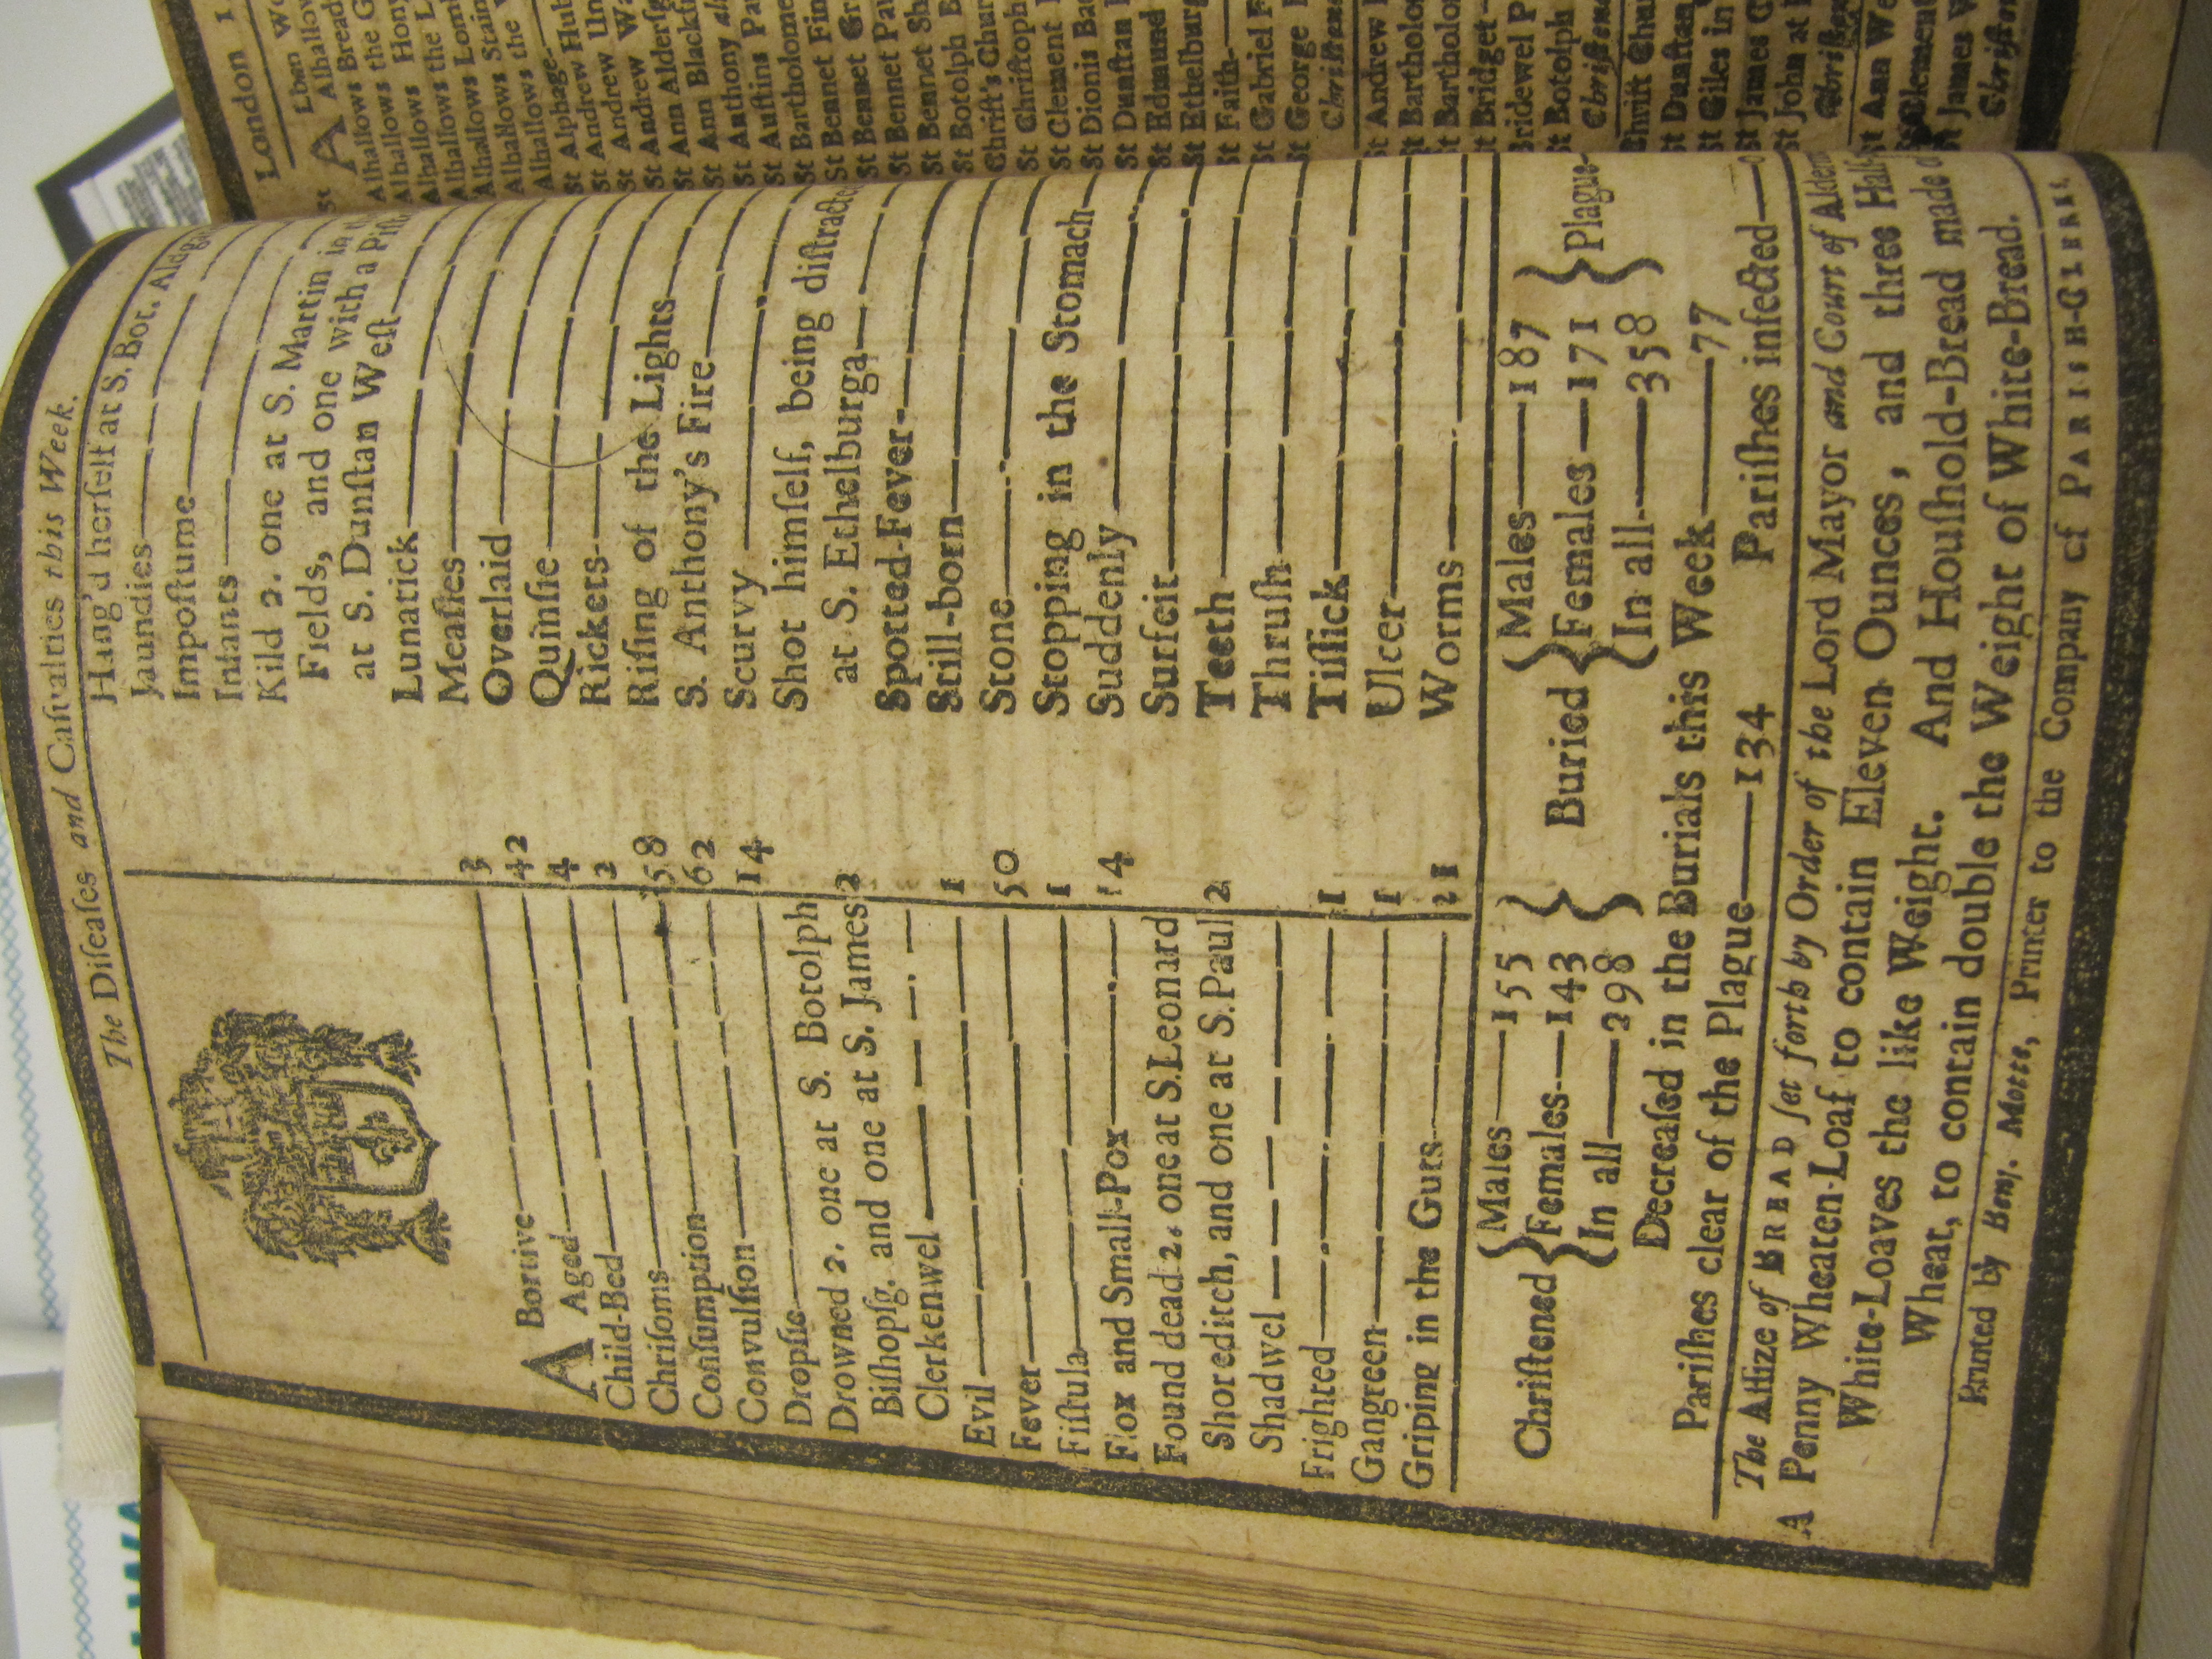 The Diſeaſes and Caſualties this Week.
ABortive 3
Aged 42
Child-Bed 4
Chriſoms 2
Conſumption 58
Convulſion 62
Dropſie 14
Drowned 2. one at S. Botolph
Biſhopſg. and one at S. James 2
Clerkenwel
Evil 1
Fever 50
Fiſtula 1
Flox and Small-Pox 14
Found dead 2. one at S. Leonard
Shoreditch, and one at S. Paul 2
Shadwel
Frighted 1
Gangreen 1
Griping in the Guts 21
Hang'd herſelf at S. Bot.
Jaundies
Impoſtume
Infants
Kild 2. one at S. Martin in
Fields, and one with a
at S. Dunſtan Weſt
Lunatick
Meaſles
Overlaid
Quinſie
Rickets
Riſing of the Lights
S. Anthony's Fire
Scurvy
Shot himſelf, being
at S. Ethelburga
Spotted-Fever
Still-born
Stone
Stopping in the Stomach
Suddenly
Surfeit
Teeth
Thruſh
Tiſſick
Ulcer
Worms
Chriſtened { Males 155 Females 143 In all 298 }
Buried { Males 187 Females 171 In all 358 } Plague
Decreaſed in the Burials this Week 77
Pariſhes clear of the Plague 134 Pariſhes infected 0
The Aſſize of BREAD ſet forth by Order of the Lord Mayor and Court of
A Penny Wheaten-Loaf to contain Eleven Ounces, and three
White-Loaves the like Weight. And Houſhold-Bread made
Wheat, to contain double the Weight of White-Bread.
Printed by Benj. Motte, Printer to the Company of PARISH-CLERKS.
London
ALban
Alhallows
Alhallows Bread
Alhallows the
Alhallows Hony
Alhallows the
Alhallows Lomb
Alhallows Stain
Alhallows the
Alphage
St Alphage
St Andrew Hub
St Andrew Un
St Andrew
St Ann
St Ann Blackf
St Anthony
St Auſtins
St Bartholome
St Bennet Fin
St Bennet Gr
St Bennet Pau
St Bennet Sh
St Botolph
Chriſt's Chur
St Chriſtoph
St Clement
St Dionis Ba
St Dunſtan
St Edmund
St Ethelburg
St Faith
St Gabriel
St George
St Andrew
St Barthol
St Barthol
St Bridget
Bridewel
St Botolph
Chriſt Chu
St Dunſtan
St Giles in
St James
St John at
St Ann
St Clement
St James